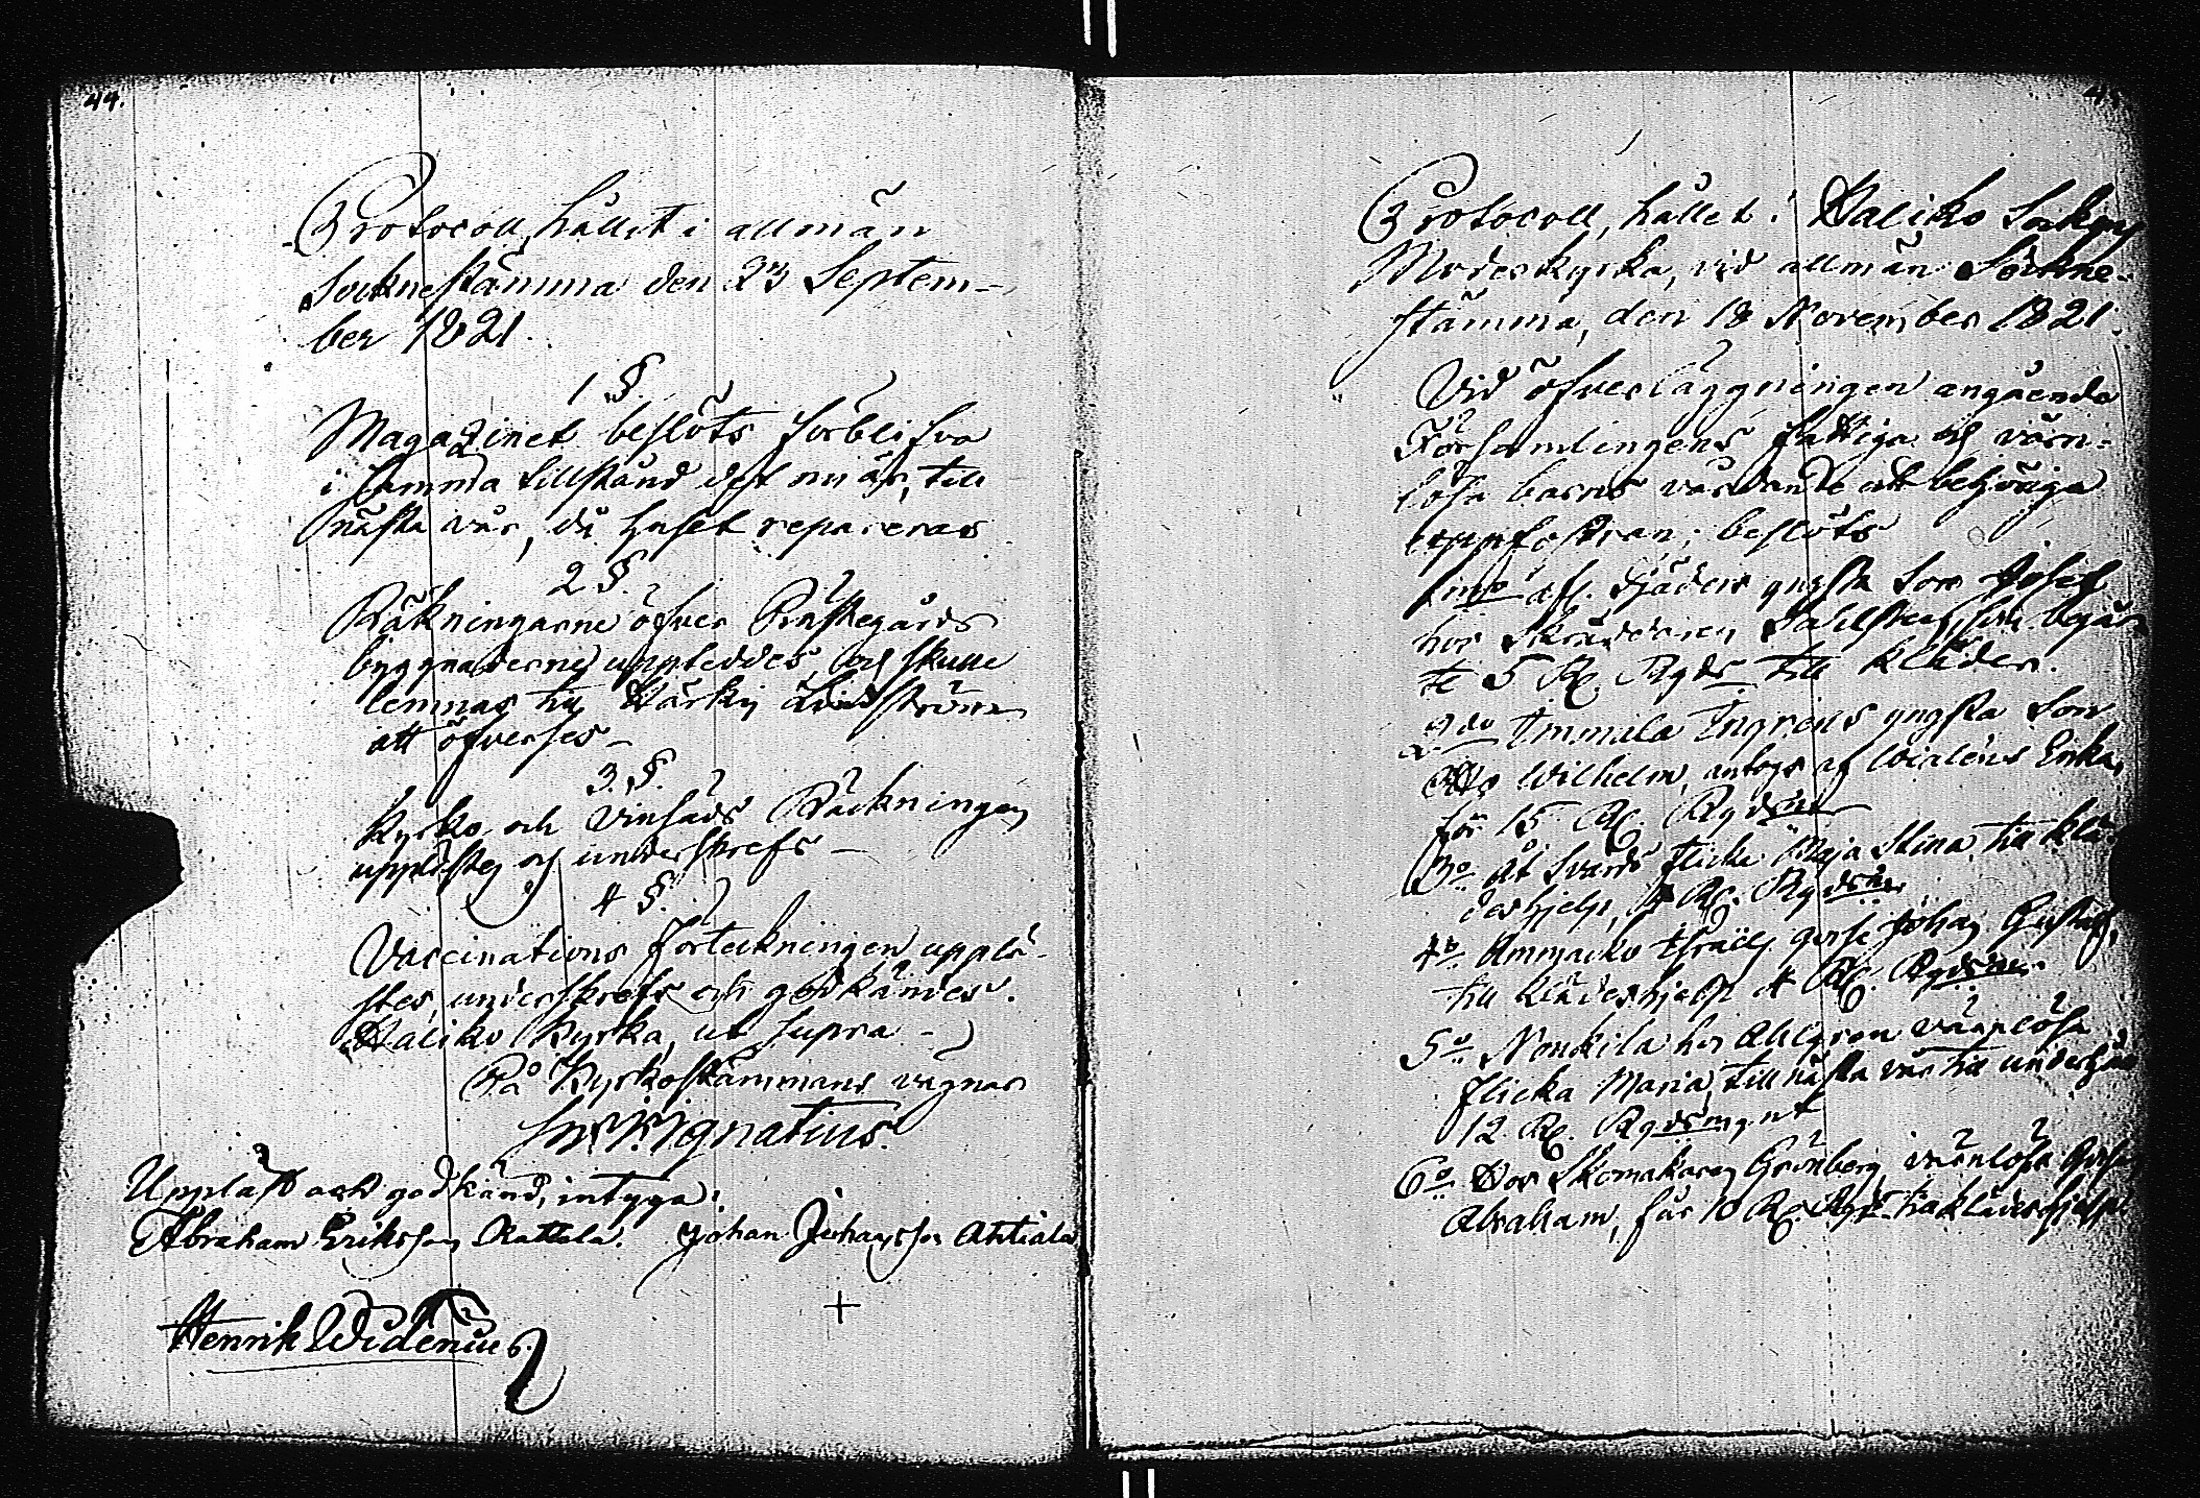 44.
Protocoll, hållit i allmän
Socknestämma den 23 Septem-
ber 1821.
1 §.
Magazinet beslöts förblifva
i samma tillstånd det nu är, till
nästa vår, då huset repareras
2 §.
Räkningarne öfver Prästegårds
byggnaderne uppteddes, och skulle
lemnas till
att öfverses -
3. §.
Kyrko och Vinsäds Räckningen
upplästes och underskrefs -
4 §.
Vaccinations Förteckningen upplä-
stes, underskrefs och godkändes.
Haliko Kyrka, ut supra -
På Kyrkostämmans vägnar
Ignatius.
Uppläst och godkänd, intyga:
Abraham Eriksson Kattala. Johan Johansson Anttiala
+
Henrik Widenius
Protocoll, hållet i Haliko Sockens
Moderkyrka, vid allmän Sockne-
stämma, den 18 November 1821.
Vid öfverläggningen angående
Församlingens fattiga och värn-
lösa barns vårdande och behöriga
uppfostran; beslöts
1mo afl. yngsta Son Josef
hos Skräddaren begär-
te 5 R. Rgds till kläder.
2do Ammala Ingrens yngsta Son
Otto Wilhelm, antogs af Erika,
för 15 R. Rgds
3o Åt Svards flicka Maja Stina till klä-
deshjelp, R. Rgds
4o Ammarko Israels gosse Johan Gustaf,
till klädeshjelp 4 R. Rgds
5o Nonkila hos Ahlgren värnlösa
flicka Maria, till nästa vår till underhåll
12 R. Rgds mynt
6o Hos Skomakaren Grönberg värnlösa Gossen
Abraham, får 10 R. Rgds till klädeshjelp